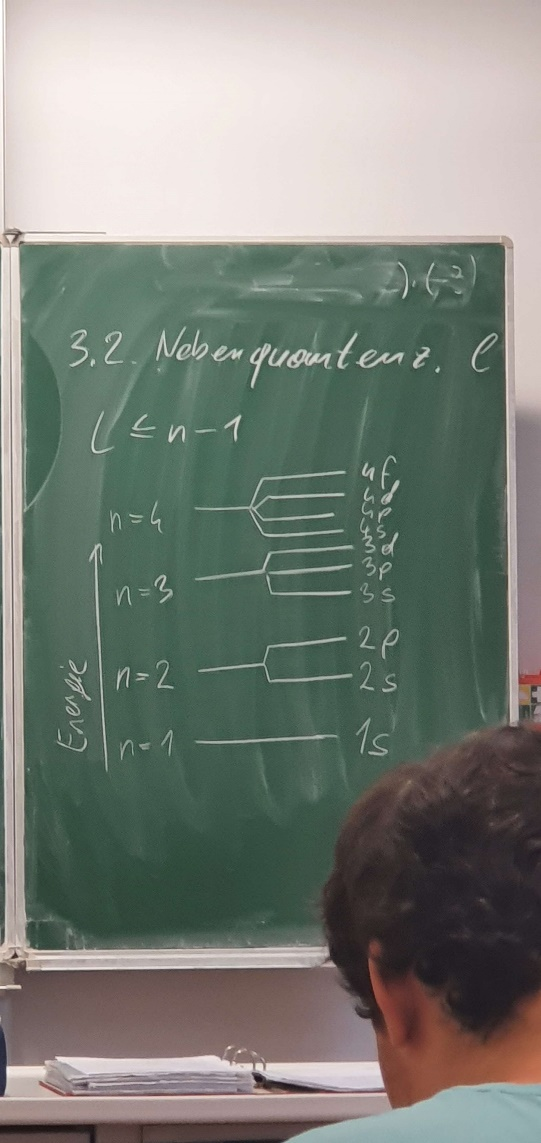 3.2. Nebenquantenz. l
l ≤ n-1
n=4 4f
4d
4p
4s
n=3 3d
3p
3s
n=2 2p
2s
n=1 1s
Energie